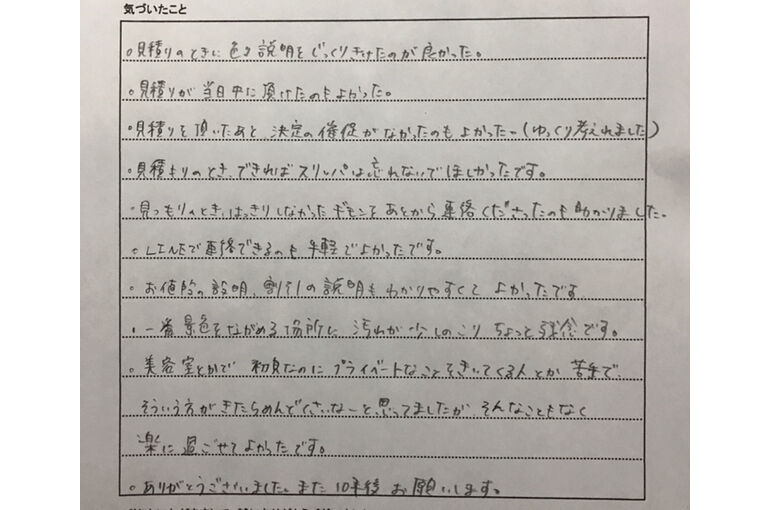 気づいたこと
○見積りのときに色々説明をじっくりきけたのが良かった。
○見積りが当日中に頂けたのもよかった。
○見積りを頂いたあと、決定の催促がなかったのもよかったー(ゆっくり考えれました)
○見積りのとき、できればスリッパは忘れないでほしかったです。
○見つもりのとき、はっきりしなかったギモンをあとから連絡くださったのも助かりました。
○LINEで連絡できるのも手軽でよかったです。
○お値段の説明、割引の説明もわかりやすくてよかったです
○一番景色をながめる場所に汚れが少しのこりちょっと残念です。
○美容室とかで初見なのにプライベートなことをきいてくる人とか苦手で、
そういう方がきたらめんどくさいなーと思ってましたがそんなこともなく
楽に過ごせてよかったです。
○ありがとうございました。また10年後お願いします。